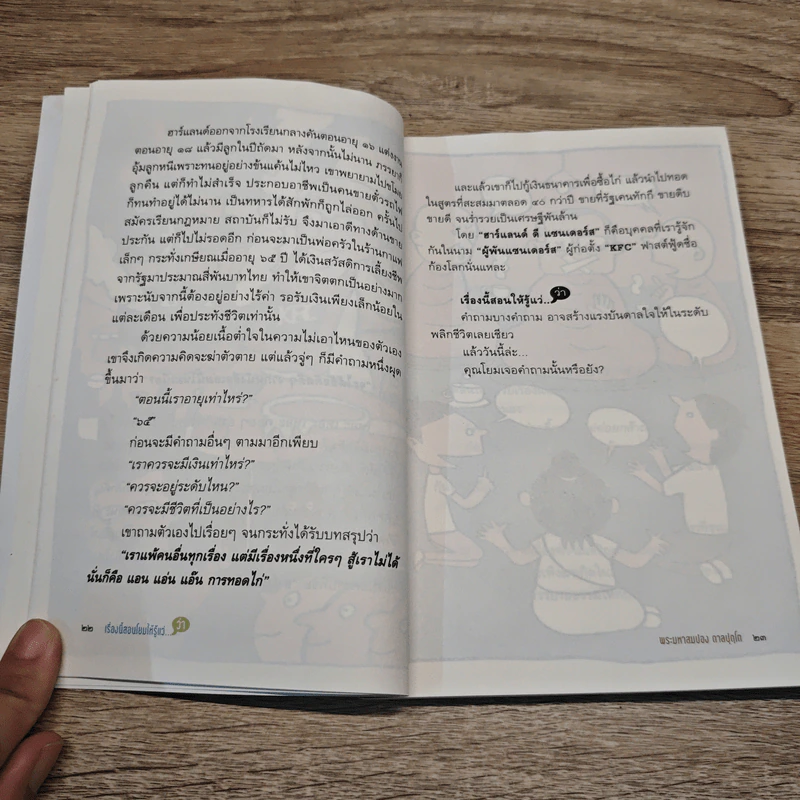 ฮาร์แลนด์ออกจากโรงเรียนกลางคันตอนอายุ ๑๖ แต่งงาน
ตอนอายุ ๑๘ แล้วมีลูกในปีถัดมา หลังจากนั้นไม่นาน ภรรยาก็
อุ้มลูกหนีเพราะทนอยู่อย่างข้นแค้นไม่ไหว เขาพยายามไปขโมย
ลูกคืน แต่ก็ทำไม่สำเร็จ ประกอบอาชีพเป็นคนขายตั๋วรถไฟ
ก็ทนทำอยู่ได้ไม่นาน เป็นทหารได้สักพักก็ถูกไล่ออก ครั้นไป
สมัครเรียนกฎหมาย สถาบันก็ไม่รับ จึงมาเอาดีทางด้านขาย
ประกัน แต่ก็ไปไม่รอดอีก ก่อนจะมาเป็นพ่อครัวในร้านกาแฟ
เล็กๆ กระทั่งเกษียณเมื่ออายุ ๖๕ ปี ได้เงินสวัสดิการเลี้ยงชีพ
จากรัฐมาประมาณสี่พันบาทไทย ทำให้เขาจิตตกเป็นอย่างมาก
เพราะนับจากนี้ต้องอยู่อย่างไร้ค่า รอรับเงินเพียงเล็กน้อยใน
แต่ละเดือน เพื่อประทังชีวิตเท่านั้น
ด้วยความน้อยเนื้อต่ำใจในความไม่เอาไหนของตัวเอง
เขาจึงเกิดความคิดจะฆ่าตัวตาย แต่แล้วจู่ๆ ก็มีคำถามหนึ่งผุด
ขึ้นมาว่า
“ตอนนี้เราอายุเท่าไหร่?”
“๖๕”
ก่อนจะมีคำถามอื่นๆ ตามมาอีกเพียบ
“เราควรจะมีเงินเท่าไหร่?”
“ควรจะอยู่ระดับไหน?”
“ควรจะมีชีวิตที่เป็นอย่างไร?”
เขาถามตัวเองไปเรื่อยๆ จนกระทั่งได้รับบทสรุปว่า
“เราแพ้คนอื่นทุกเรื่อง แต่มีเรื่องหนึ่งที่ใครๆ สู้เราไม่ได้
นั่นก็คือ แอน แอ่น แอ๊น การทอดไก่”
๒๒ เรื่องนี้สอนโยมให้รู้แว่...ว้า
และแล้วเขาก็ไปกู้เงินธนาคารเพื่อซื้อไก่ แล้วนำไปทอด
ในสูตรที่สะสมมาตลอด ๔๐ กว่าปี ขายที่รัฐเคนทักกี ขายดิบ
ขายดี จนร่ำรวยเป็นเศรษฐีพันล้าน
โดย “ฮาร์แลนด์ ดี แซนเดอร์ส” ก็คือบุคคลที่เรารู้จัก
กันในนาม “ผู้พันแซนเดอร์ส” ผู้ก่อตั้ง “KFC” ฟาสต์ฟู้ดชื่อ
ก้องโลกนั่นแหละ
เรื่องนี้สอนให้รู้แว่...ว้า
คำถามบางคำถาม อาจสร้างแรงบันดาลใจให้ในระดับ
พลิกชีวิตเลยเชียว
แล้ววันนี้ล่ะ...
คุณโยมเจอคำถามนั้นหรือยัง?
พระมหาสมปอง ตาลปุตฺโต ๒๓